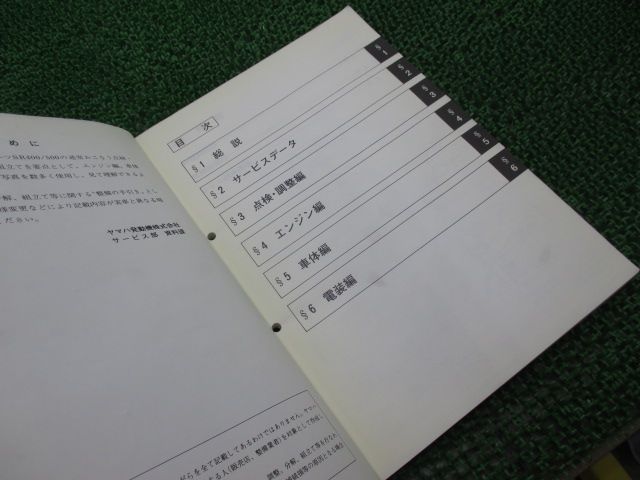 めに
ーツSR400/500の通常おこなう点検・
組立てを重点として、エンジン編、車体
写真を数多く使用し、見て理解できるよ
解、組立て等に関する"整備の手引き"とし
様変更などにより記載内容が実車と異なる場
ください。
ヤマハ発動機株式会社
サービス部 資料課
がらを全て記載してあるわけではありません。ヤマハ
する人(販売店、整備業者)を対象として作成
調整、分解、組立て等をおこな
目次
§1 総説
§2 サービスデータ
§3 点検・調整編
§4 エンジン編
§5 車体編
§6 電装編
§1
§2
§3
§4
§5
§6